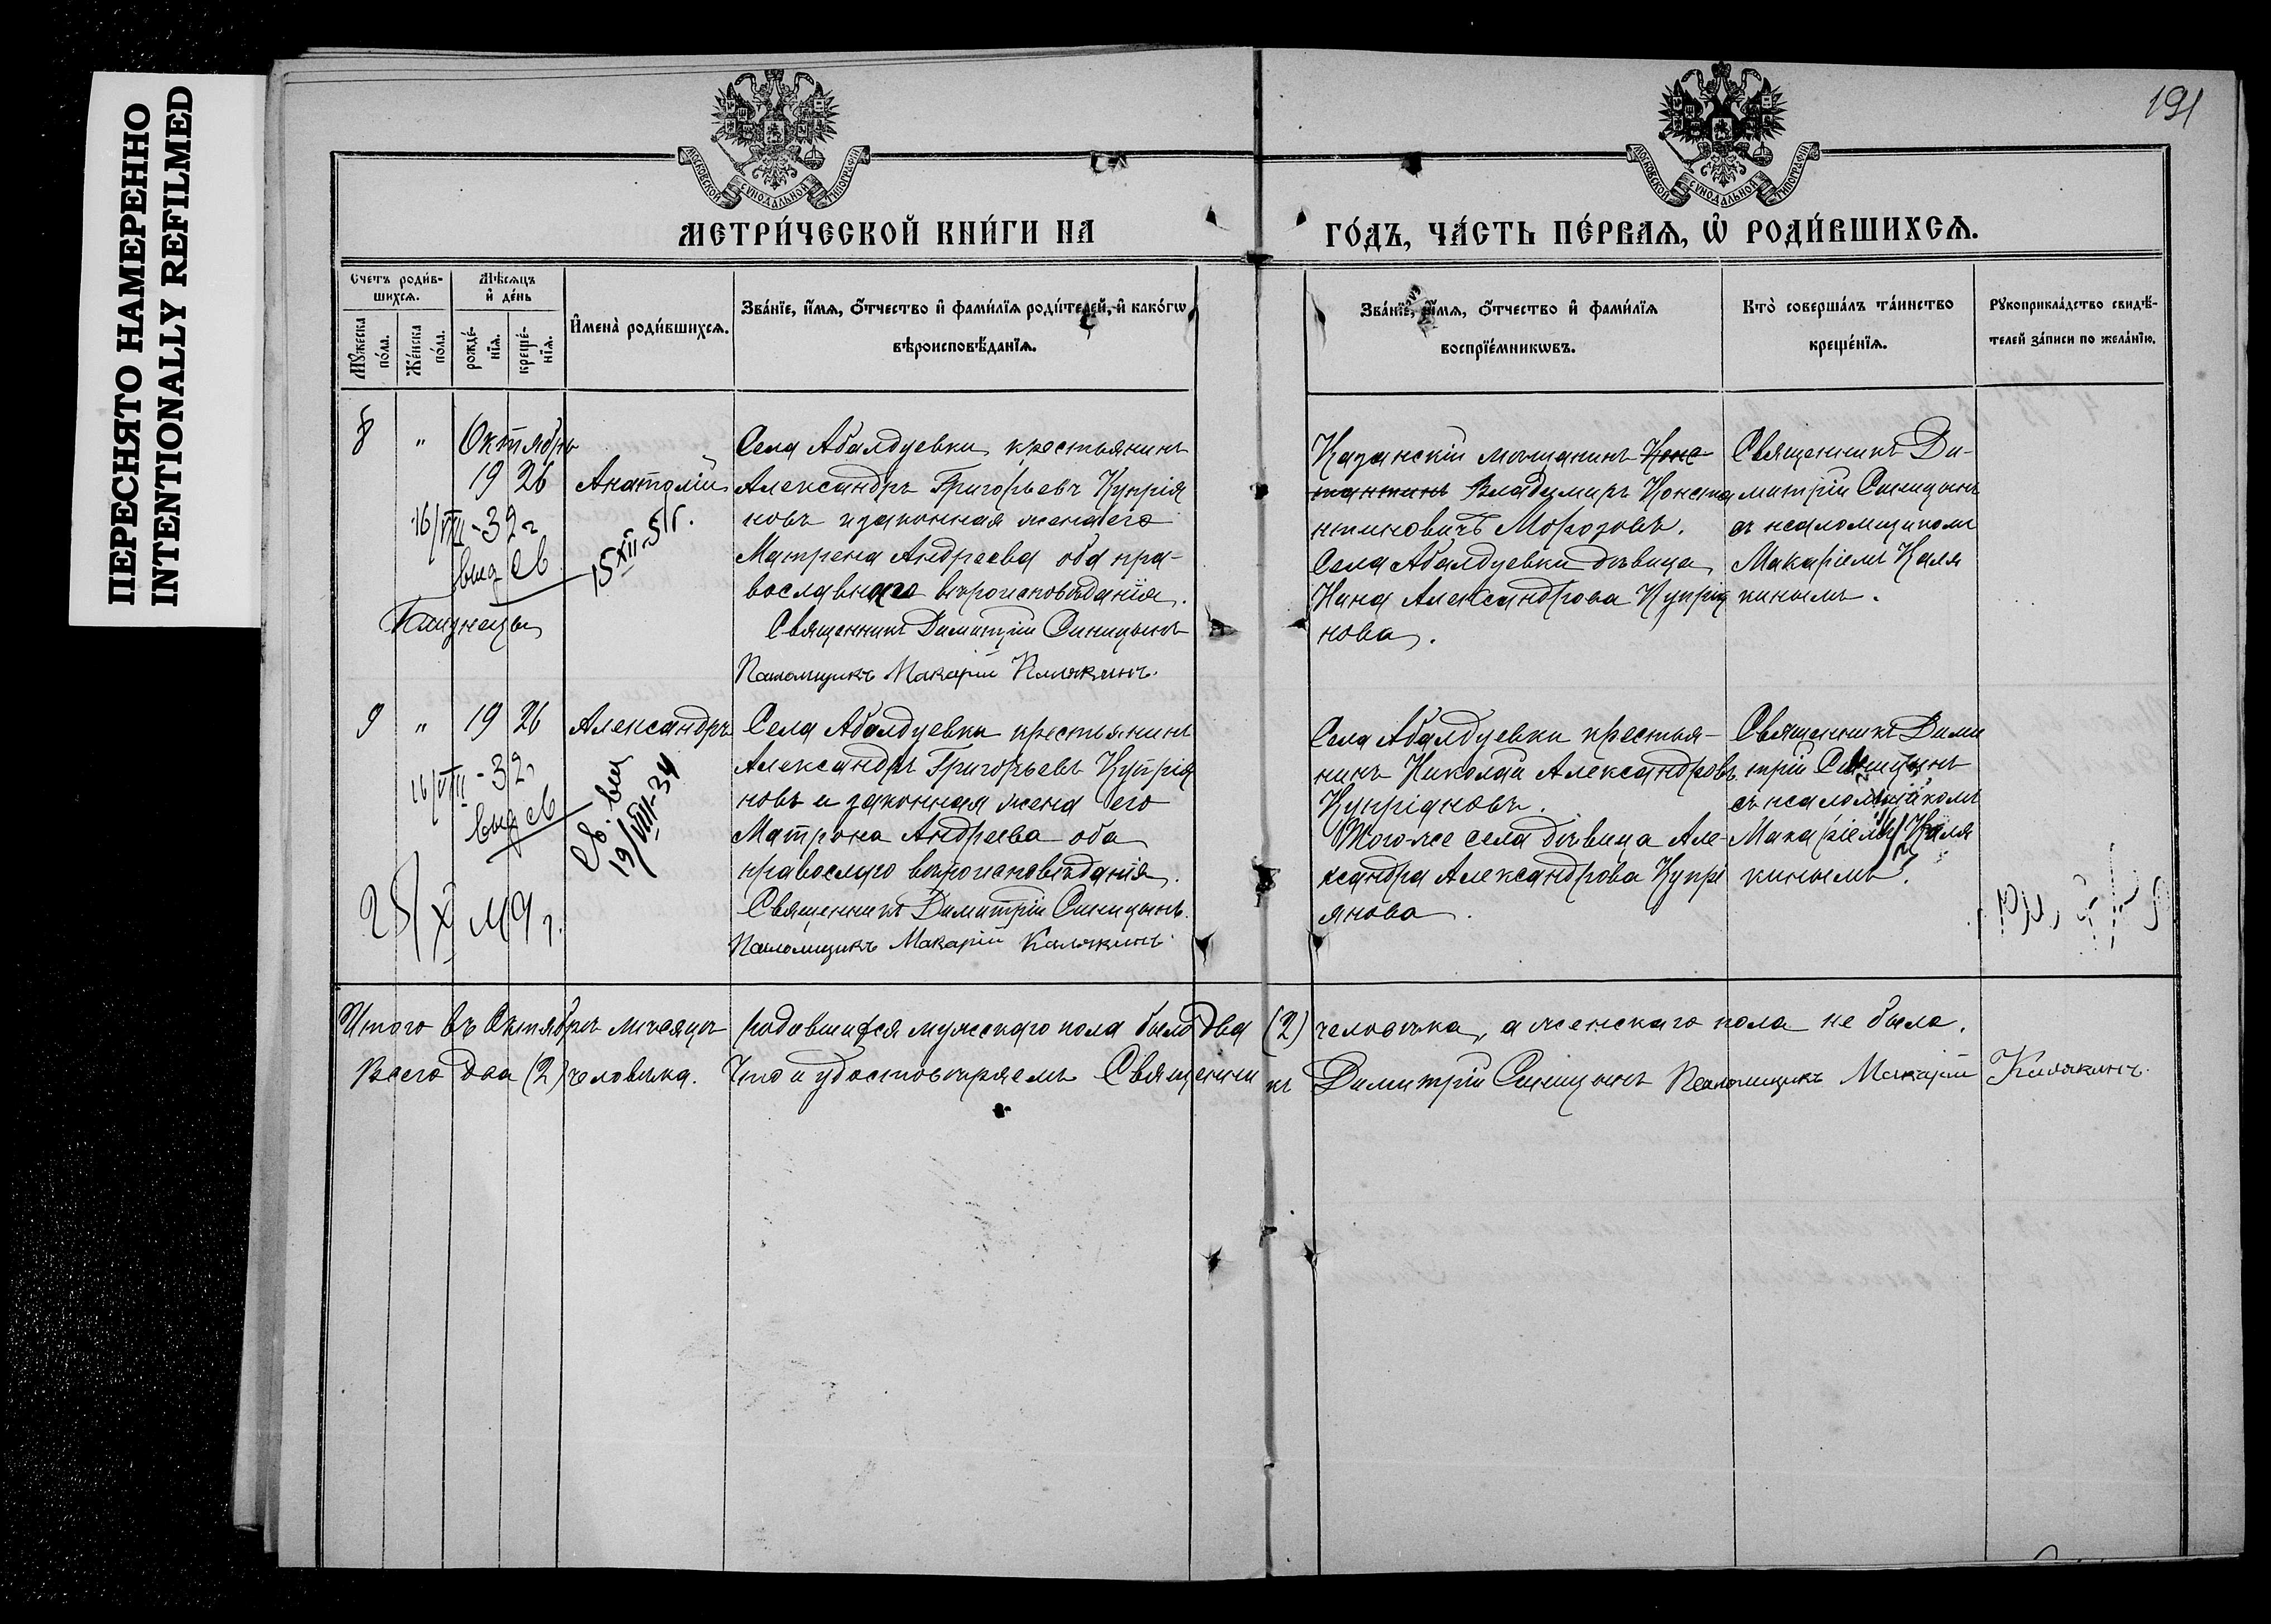 ПЕРЕСНЯТО НАМЕРЕННО
INTENTIONALLY REFILMED
191
МОСКОВСКОЙ СѴНОДАЛЬНОЙ ТИПОГРАФІИ
МОСКОВСКОЙ СѴНОДАЛЬНОЙ ТИПОГРАФІИ
МЕТРИ́ЧЕСКОЙ КНИ́ГИ НА ГО́ДЪ, ЧА́СТЬ ПЕ́РВАѦ, Ѡ҆ РОДИ́ВШИХСѦ.
Счетъ роди́в-
шихсѧ.
Мꙋжеска
по́ла.
Же́нска
по́ла.
Мѣ́сѧцъ
и҆ де́нь
рожде́-
нїѧ.
креще́-
нїѧ.
И҆мена̀ роди́вшихсѧ.
Зва́нїе, и҆́мѧ, ѻ҆́тчество и҆ фами́лїѧ роди́телей, и҆ како́гѡ
вѣроисповѣ́данїѧ.
Зва́нїе, и҆́мѧ, ѻ҆́тчество и҆ фами́лїѧ
воспрїе́мникѡвъ.
Кто̀ соверша́лъ та́инство
креще́нїѧ.
Рꙋкоприкла́дство свидѣ́-
телей за́писи по жела́нїю.
8 " Октябрь
19 26 Анатолій
16/VIII-32 г
выд св
15 XII 51 г.
Села Абалдуевки крестьянинъ
Александръ Григорьевъ Купрія
новъ и законная жена его
Матрена Андреева оба пра-
вославнаго вѣроисповѣданія.
Священникъ Димитрій Синицынъ
Псаломщикъ Макарій Калякинъ.
Казанскій мѣщанинъ Конс-
тантинъ Владимиръ Конста
нтиновичъ Морозовъ.
Села Абалдуевки дѣвица
Нина Александрова Купрія
нова.
Священникъ Ди-
митрій Синицынъ
съ псаломщикомъ
Макаріемъ Каля
кинымъ.
9 " 19 26 Александръ
16/VIII-32 г
выд св
св. выд
19/VIII-34
25/X 49 г.
Села Абалдуевки крестьянинъ
Александръ Григорьевъ Купрія
новъ и законная жена его
Матрона Андреева оба
православнаго вѣроисповѣданія.
Священникъ Димитрій Синицынъ.
Псаломщикъ Макарій Калякинъ
Села Абалдуевки крестья-
нинъ Николай Александровъ
Купріановъ.
Того-же села дѣвица Але-
ксандра Александрова Купрі
янова.
Священникъ Дими
трій Синицынъ
съ псаломщикомъ
Макаріемъ Каля
кинымъ.
Итого въ Октябрѣ мѣсяцѣ родившихся мужскаго пола было два (2) человѣка, а женскаго пола не было.
Всего два (2) человѣка. Что и удостовѣряемъ Священникъ Димитрій Синицынъ Псаломщикъ Макарій Калякинъ.